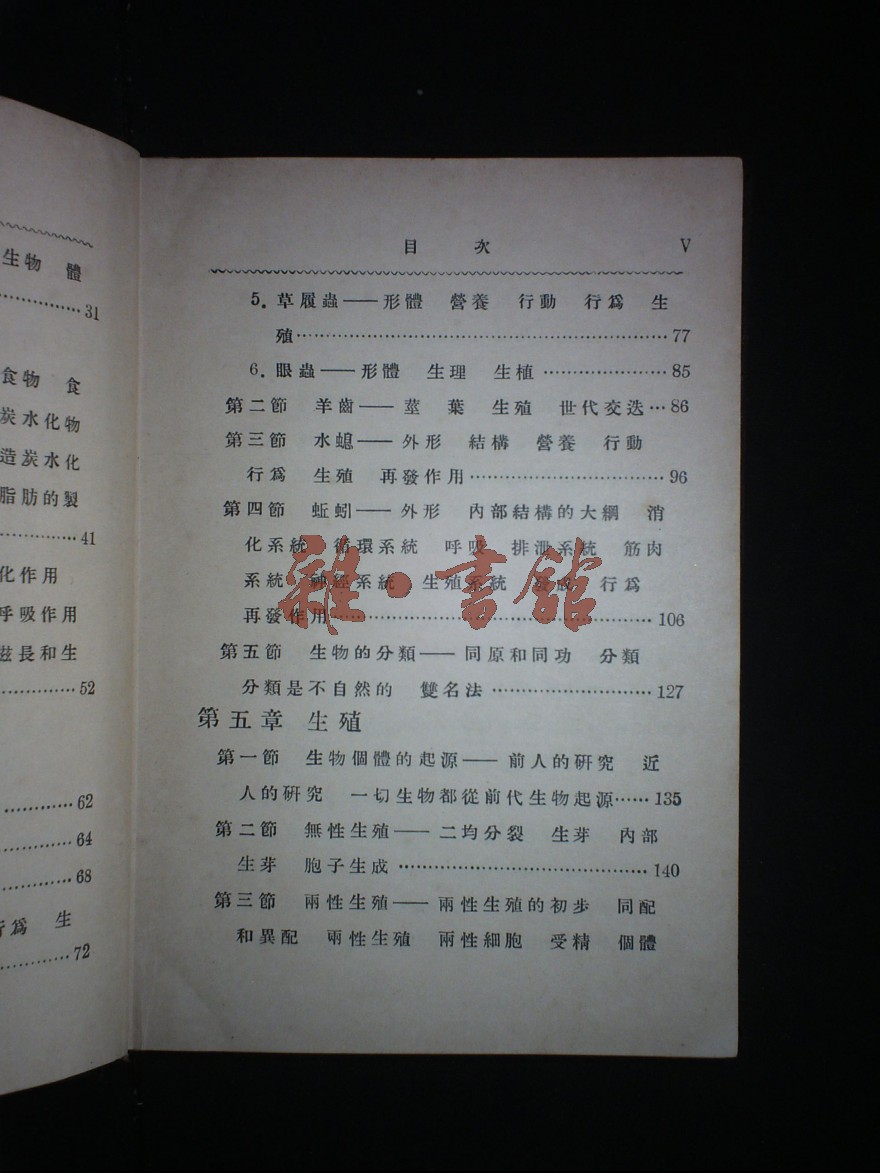 生物 體
31
食物 食
炭水化物
造炭水化
脂肪的製
41
化作用
呼吸作用
滋長和生
52
62
64
68
行爲 生
72
目 次 V
5. 草履蟲——形體 營養 行動 行爲 生
殖……77
6. 眼蟲——形體 生理 生植……85
第二節 羊齒——莖 葉 生殖 世代交迭…86
第三節 水螅——外形 結構 營養 行動
行爲 生殖 再發作用……96
第四節 蚯蚓——外形 內部結構的大綱 消
化系統 循環系統 呼吸 排泄系統 筋肉
系統 神經系統 生殖系統 發育 行爲
再發作用……106
第五節 生物的分類——同原和同功 分類
分類是不自然的 雙名法……127
第五章 生殖
第一節 生物個體的起源——前人的硏究 近
人的硏究 一切生物都從前代生物起源……135
第二節 無性生殖——二均分裂 生芽 內部
生芽 胞子生成……140
第三節 兩性生殖——兩性生殖的初步 同配
和異配 兩性生殖 兩性細胞 受精 個體
雜·書館